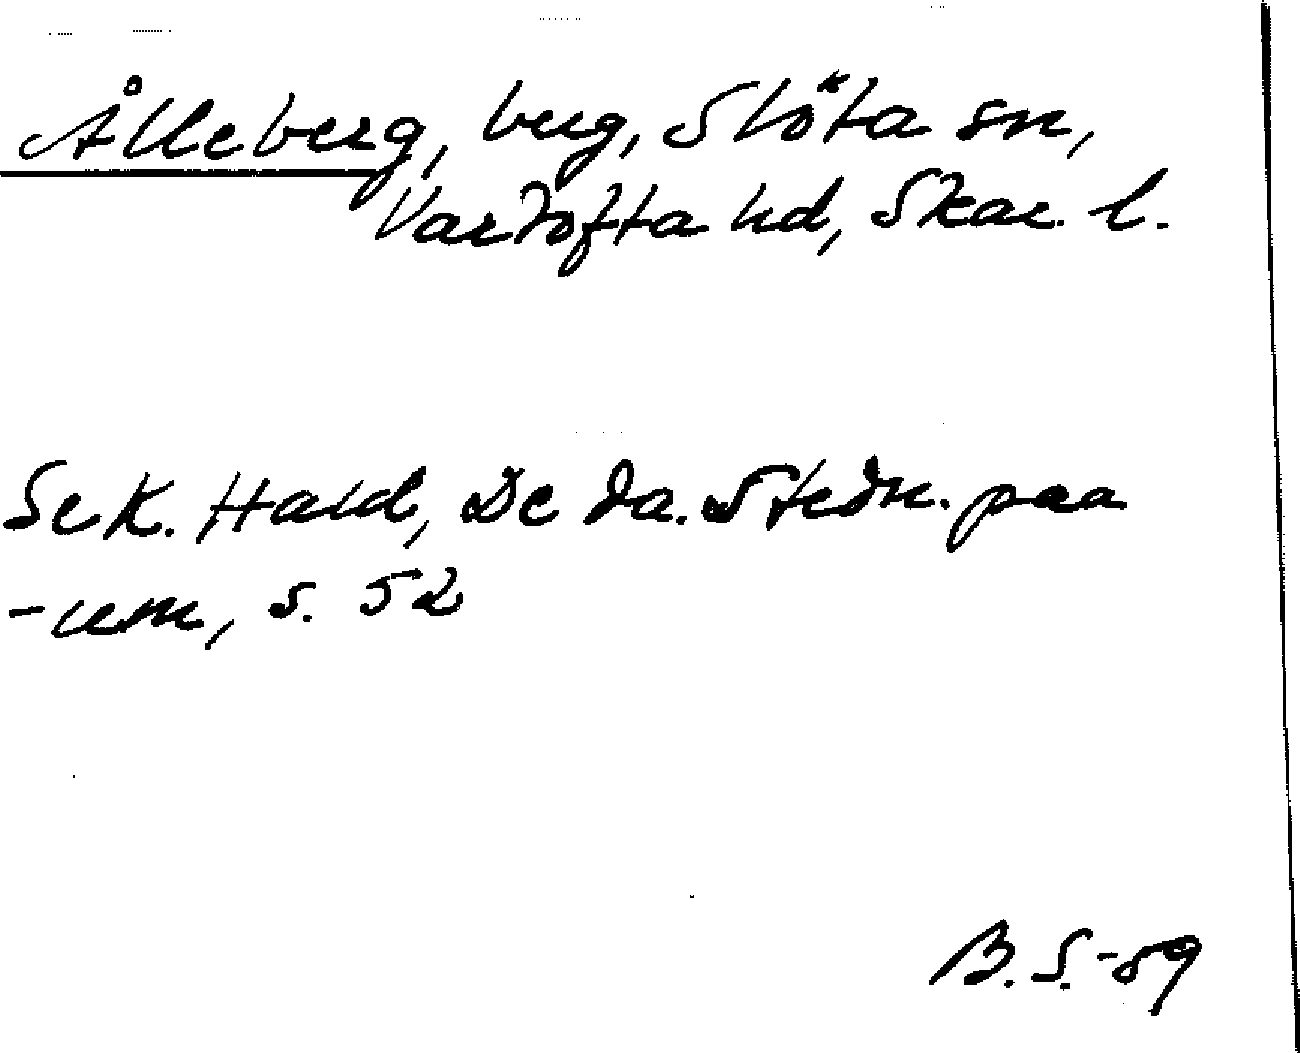 Ålleberg, berg, Slöta sn,
Vartofta hd, Skar. l.
Se K. Hald, De da. Stedn. paa
-um, s. 52
B. S. -89